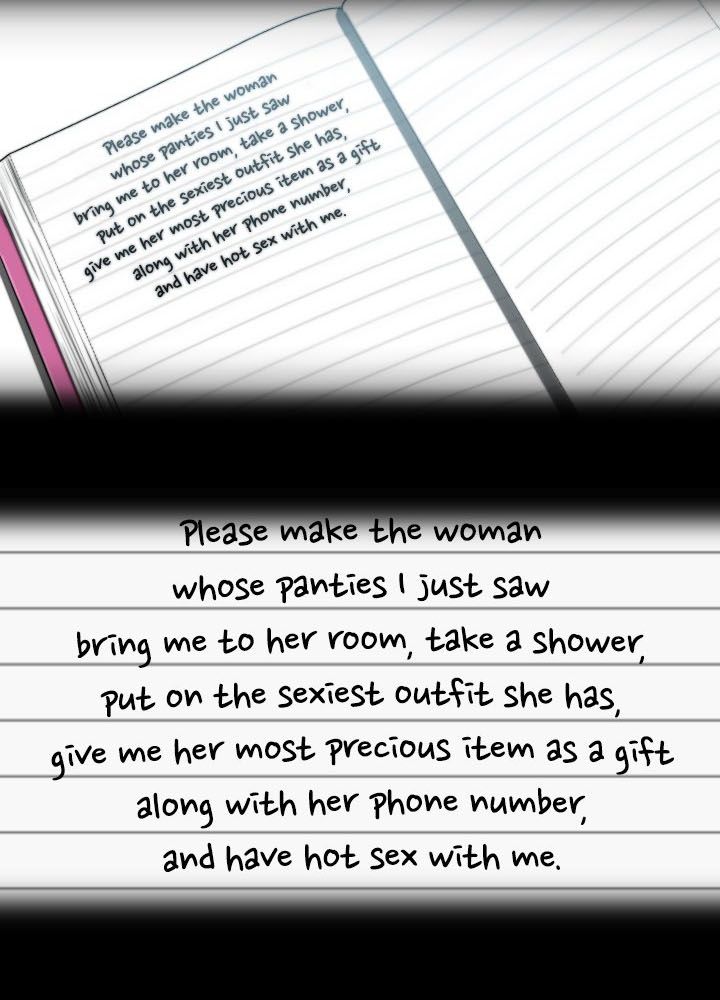 Please make the woman
whose panties I just saw
bring me to her room, take a shower,
put on the sexiest outfit she has,
give me her most precious item as a gift
along with her phone number,
and have hot sex with me.
Please make the woman
whose panties I just saw
bring me to her room, take a shower,
put on the sexiest outfit she has,
give me her most precious item as a gift
along with her phone number,
and have hot sex with me.